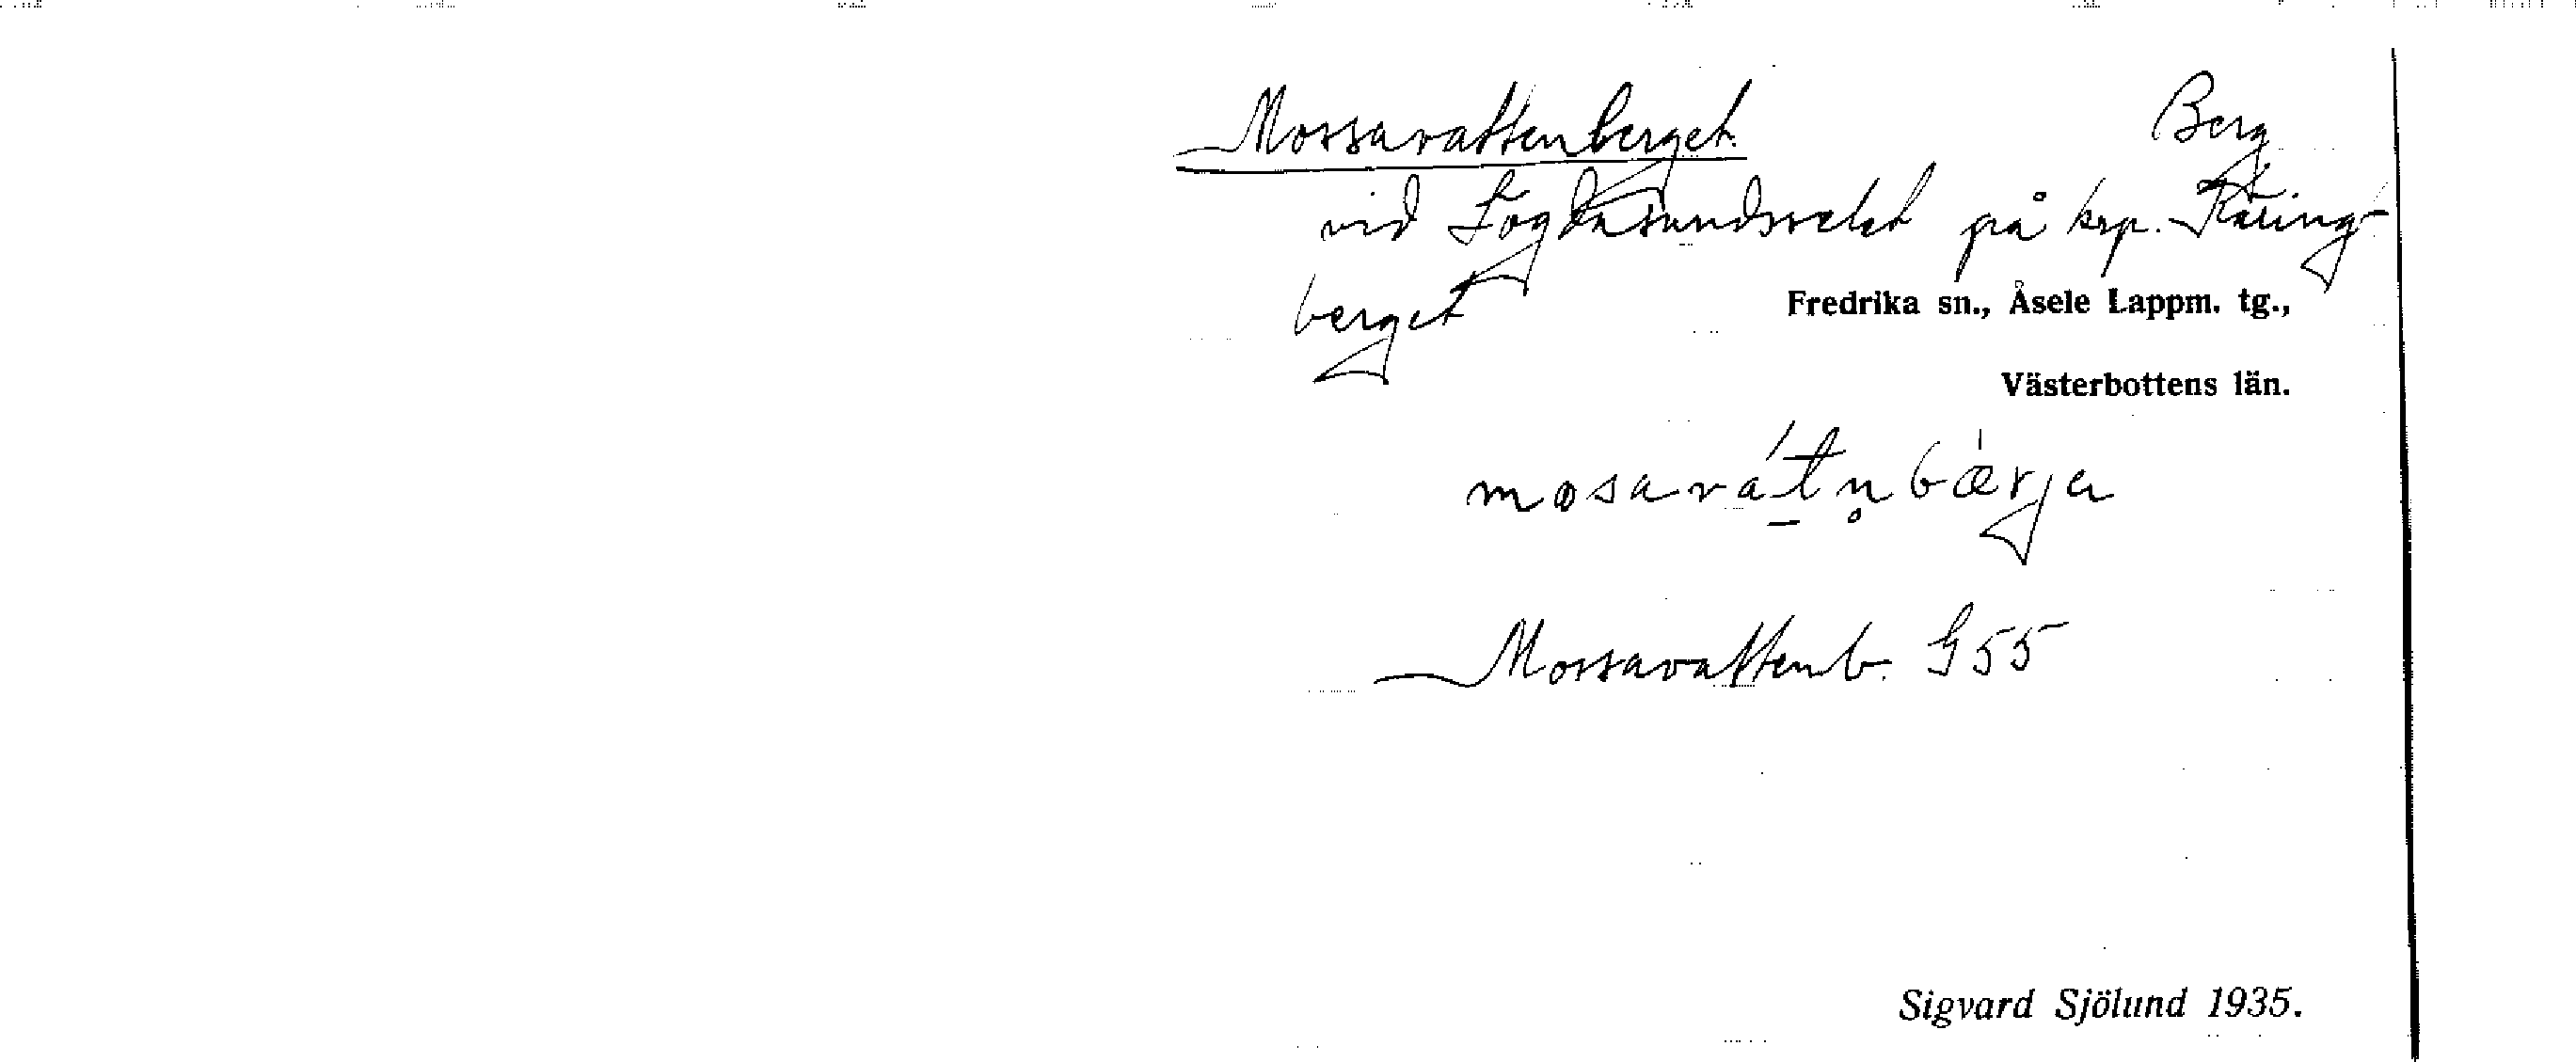 Mossavattenberget. Berg
vid Lögdasundsselet på krp. Käring-
berget
Fredrika sn., Åsele Lappm. tg.,
Västerbottens län.
mosavátn̥bærja
Mossavattenb. G55
Sigvard Sjölund 1935.